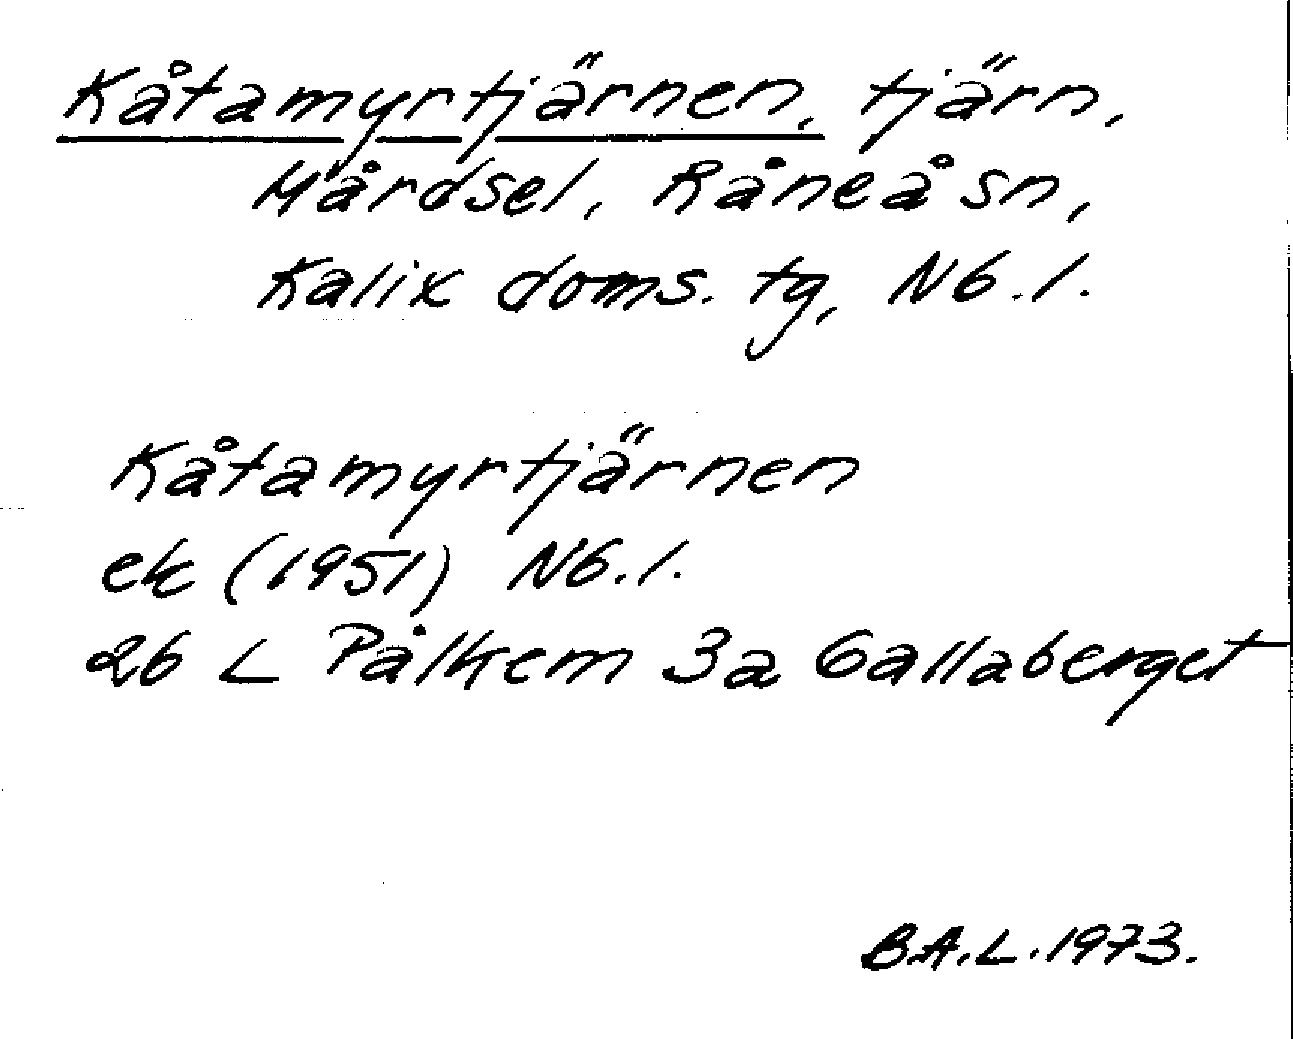 Kåtamyrtjärnen, tjärn,
Mårdsel, Råneå sn,
Kalix doms. tg, Nb.l.
Kåtamyrtjärnen
ek (1951) Nb.l.
26 L Pålkem 3a Gallaberget
B.A.L. 1973.